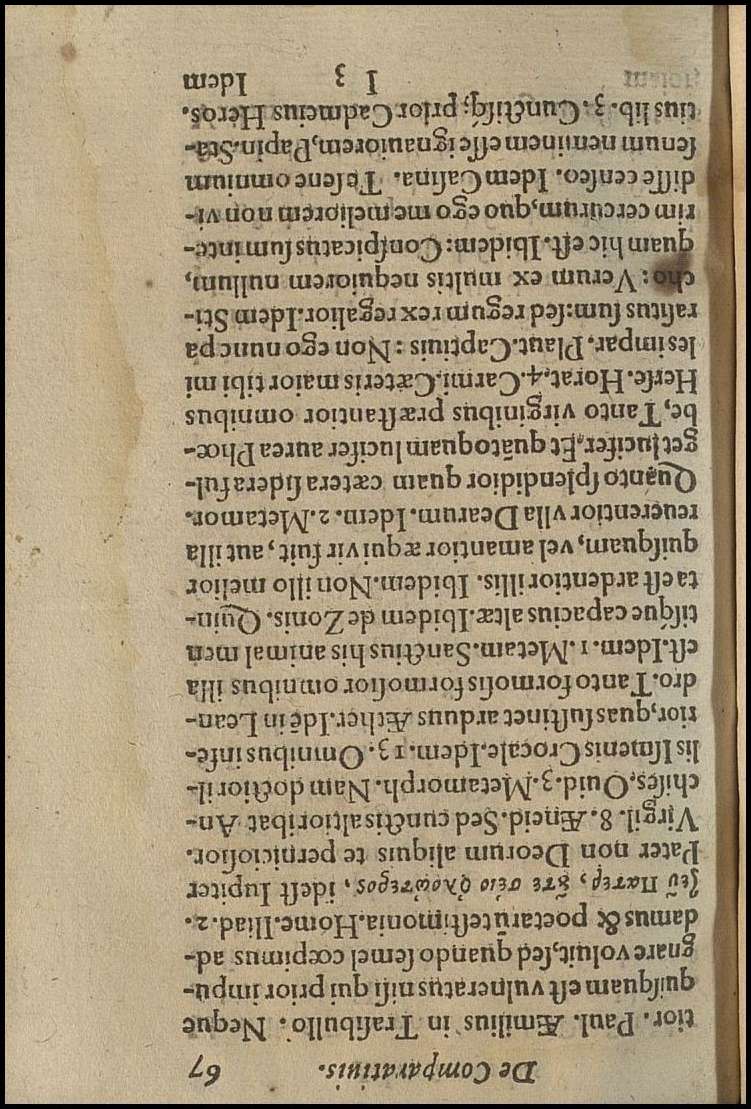 De Comparatiuis. 67
tior. Paul. Æmilius in Trasibullo. Neque
quisquam est vulneratus nisi qui prior impu-
gnare voluit, sed quando semel cœpimus ad-
damus & poetarū testimonia. Home. Iliad. 2.
ζεῦ πατερ, ȣ̓τε σεῖο ὀλοώτερος, idest Iupiter
Pater non Deorum aliquis te perniciosior.
Virgil. 8. Æneid. Sed cunctis altior ibat An-
chises, Ouid. 3. Metamorph. Nam doctior il-
lis Ismenis Crocale. Idem. 13. Omnibus infe-
rior, quas sustinet arduus Æther. Idē in Lean-
dro. Tanto formosis formosior omnibus illa
est. Idem. 1. Metam. Sanctius his animal men
tisque capacius altæ. Ibidem de Zonis. Quin-
ta est ardentior illis. Ibidem. Non illo melior
quisquam, vel amantior æqui vir fuit, aut illa
reuerentior vlla Dearum. Idem. 2. Metamor.
Quanto splendidior quam cætera sidera ful-
get lucifer, Et quāto quam lucifer aurea Phœ-
be, Tanto virginibus præstantior omnibus
Herse. Horat. 4. Carmi. Cæteris maior tibi mi
les impar. Plaut. Captiuis: Non ego nunc pa
rasitus sum: sed regum rex regalior. Idem Sti-
cho: Verum ex multis nequiorem nullum,
quam hic est. Ibidem: Conspicatus sum inte-
rim cercurum, quo ego me meliorem non vi-
disse censeo. Idem Casina. Te sene omnium
senum neminem esse ignauiorem, Papin. Sta-
tius lib. 3. Cunctisq; prior Cadmeius Heros.
I 3 Idem